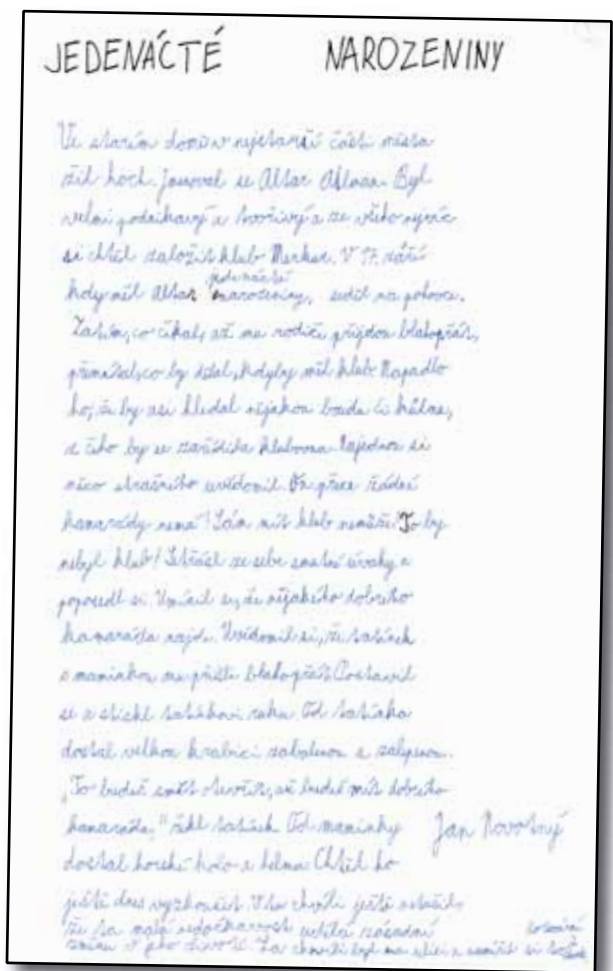 JEDENÁCTÉ NAROZENINY
Ve starém domě v nejstarší části města
žil hoch. Jmenoval se Altar Altman. Byl
velmi podnikavý a tvořivý a ze všeho nejvíc
si chtěl založit klub Merkur. V 17. září
jedenácté
kdy měl Altar narozeniny, seděl na pohovce.
Zatím, co čekal, až mu rodiče přijdou blahopřát,
přemýšlel, co by dělal, kdyby měl klub. Napadlo
ho, že by asi hledal nějakou boudu či kůlnu,
z čeho by se zařídila klubovna. Najednou si
něco strašného uvědomil. On přece žádné
kamarády nemá! Sám mít klub nemůže! To by
nebyl klub! Setřásl ze sebe smutné úvahy a
poposedl si. Umínil si, že nějakého dobrého
kamaráda najde. Uvědomil si, že tatínek
s maminkou mu přišli blahopřát. Postavil
se a stiskl tatínkovi ruku. Od tatínka
dostal velkou krabici zabalenou a zalepenou.
„To budeš smět otevřít, až budeš mít dobrého
kamaráda," řekl tatínek. Od maminky
Jan Novotný
dostal horské kolo a helmu. Chtěl ho
ještě dnes vyzkoušet. V tu chvíli ještě netušil,
že ta malá nedočkavost udělá zásadní
změnu v jeho životě. Za chvíli byl na ulici a